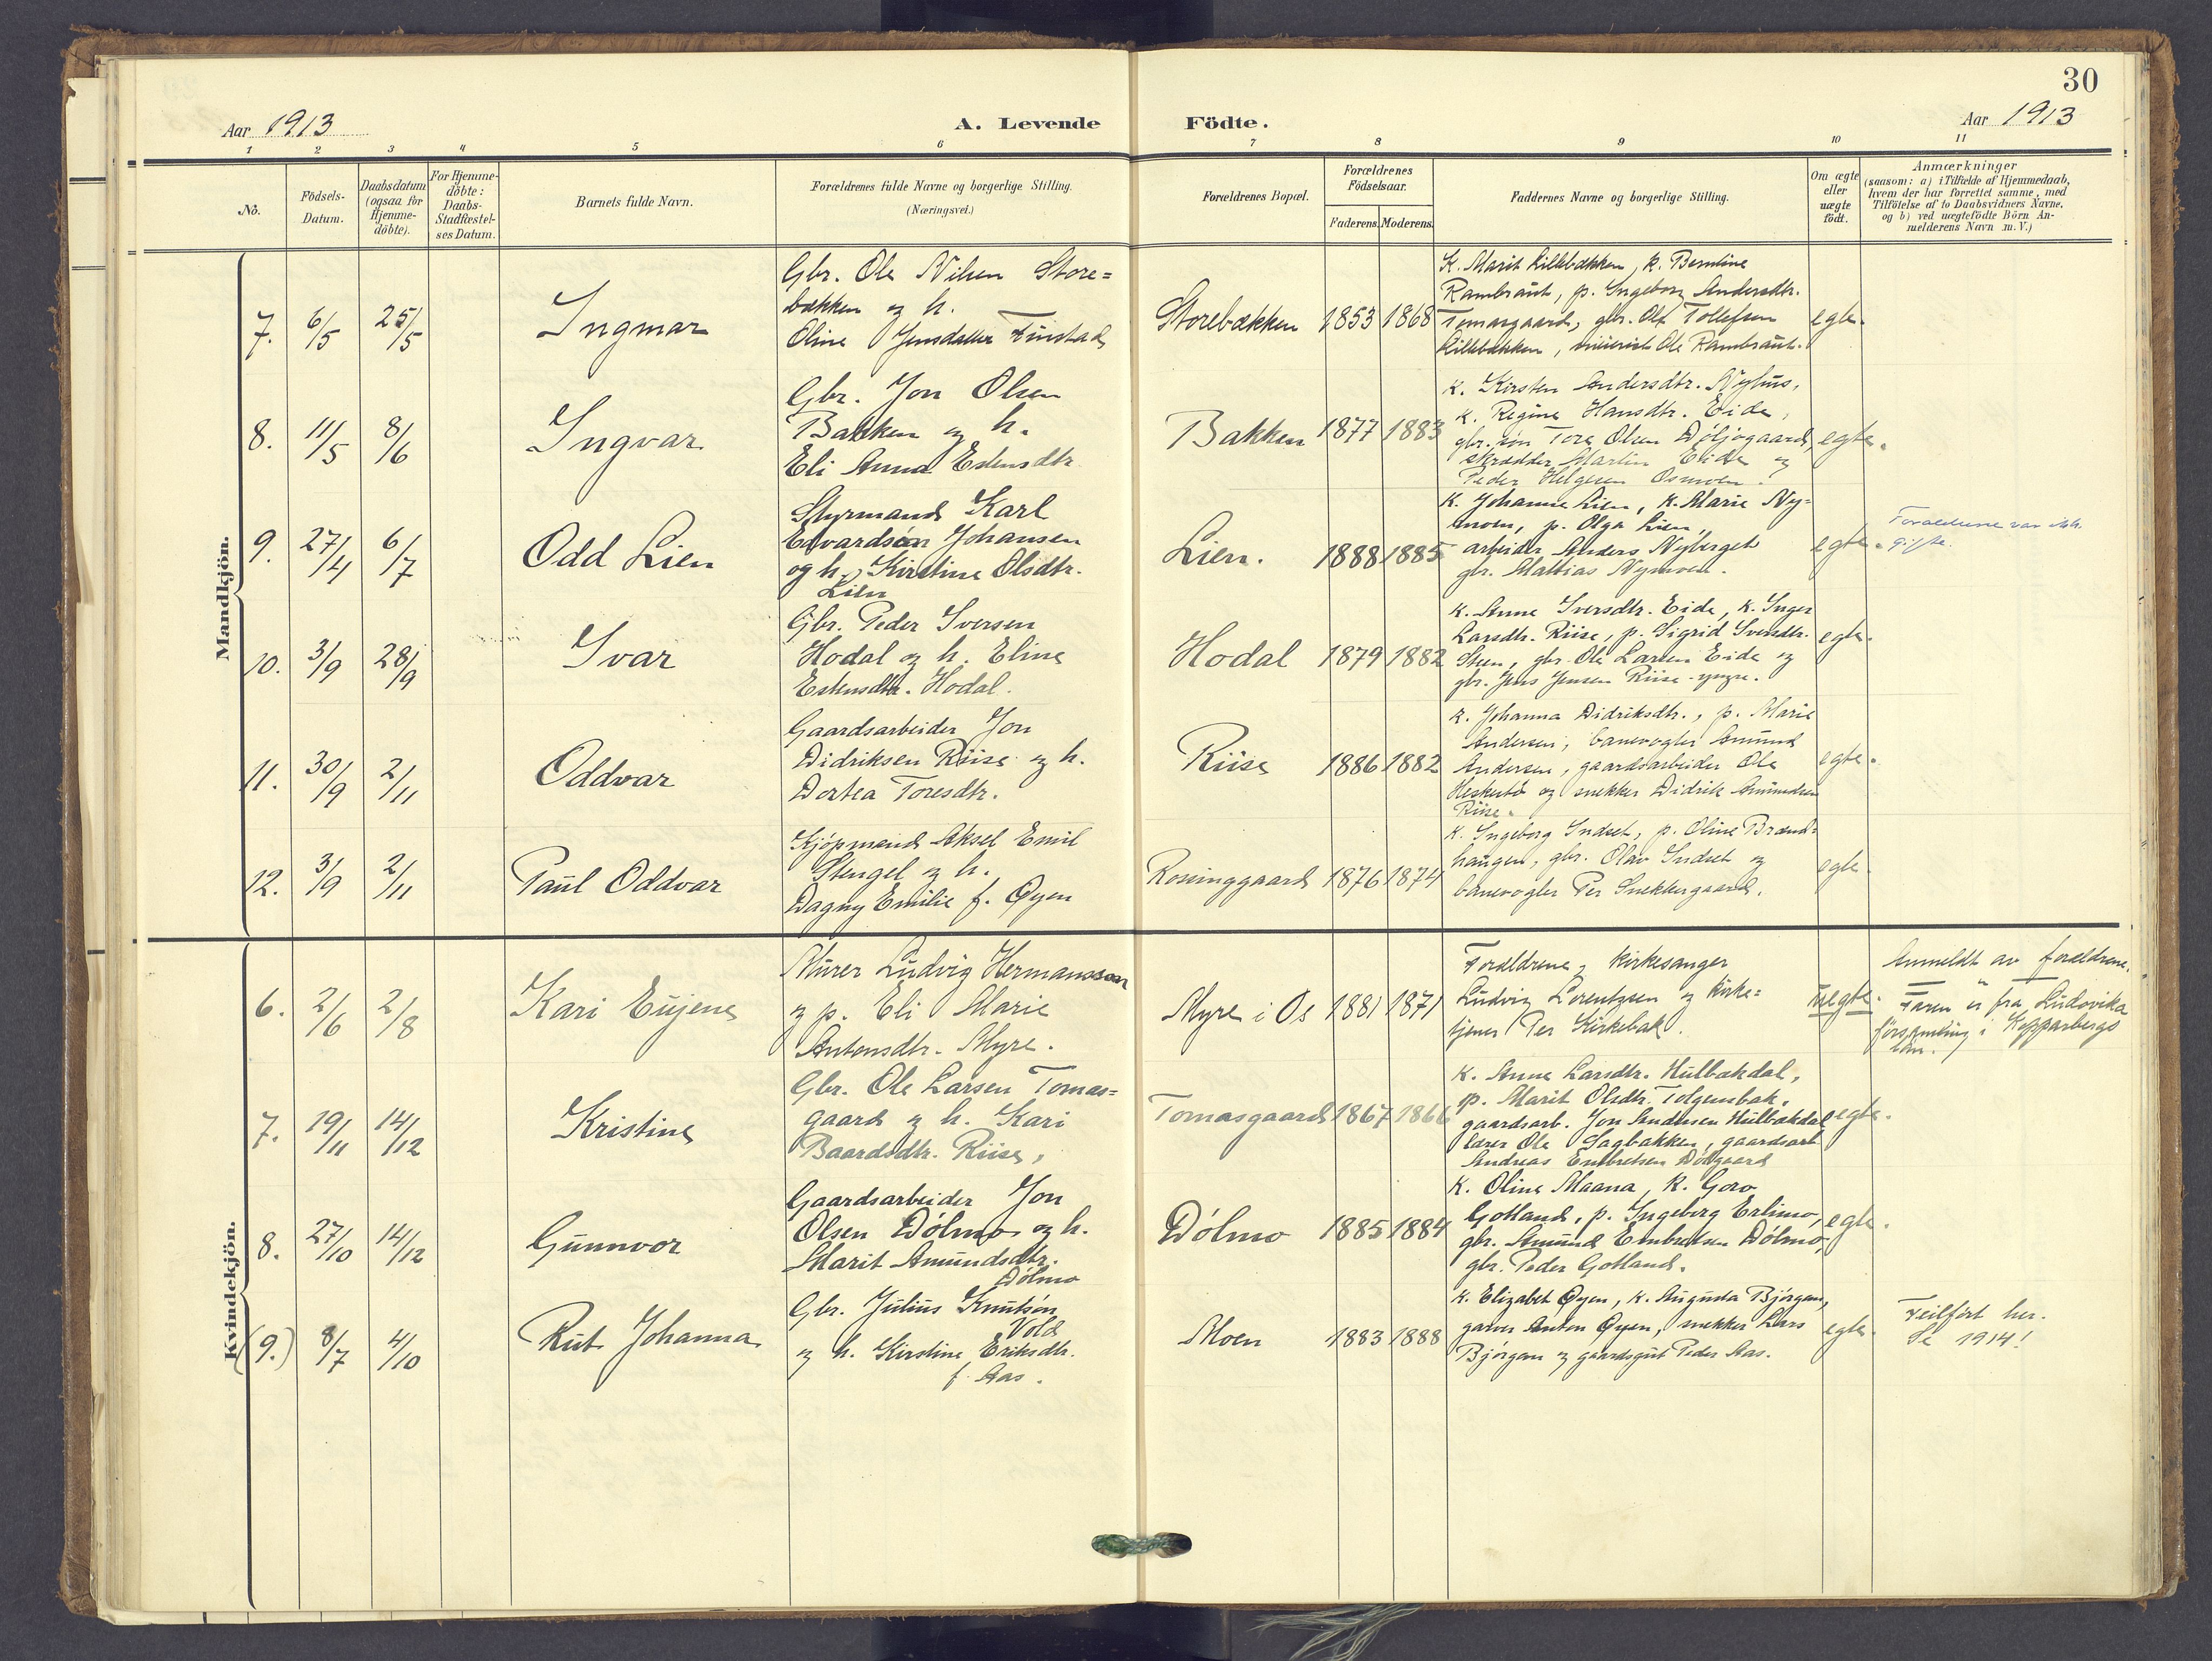 30
Aar 1913
A. Levende
Födte.
Aar 1913
1 2 3 4 5 6 7 8 9 10 11
No.
Födsels-
Datum.
Daabsdatum
(ogsaa for
Hjemme-
döbte).
For Hjemme-
döbte:
Daabs-
Stadfæstel-
ses Datum.
Barnets fulde Navn.
Forældrenes fulde Navne og borgerlige Stilling.
(Næringsvei.)
Forældrenes Bopæl.
Forældrenes
Födselsaar.
Faderens. Moderens.
Faddernes Navne og borgerlige Stilling.
Om ægte
eller
uægte
födt.
Anmærkninger
(saasom: a) i Tilfælde af Hjemmedaab,
hvem der har forrettet samme, med
Tilföielse af to Daabsvidners Navne,
og b) ved uægtefödte Börn An-
melderens Navn m. V.)
Mandkjön.
7. 6/5 25/5
Ingmar
Gbr. Ole Nilsen Store=
bækken og h.
Oline Jensdatter
Storebækken
1853 1868
K. Marit Lillebækken, k.
Rambraut, p. Ingeborg Andersdtr.
Tomasgaard, gbr. Ole Tollefsen
Lillebækken, Ole Rambraut.
egte.
8. 11/5 8/6
Ingvar
Gbr. Jon Olsen
Bakken og h.
Eli Anna Estensdtr
Bakken
1877 1883
K. Kirsten Andersdtr. Nyhus,
K. Regine Hansdtr. Eide,
gbr. Tore Olsen
skrædder Martin Eide og
Peder Helgesen Osmoen.
egte.
9. 27/4 6/7
Odd Lien
Styrmand Karl
Edvardsen Johansen
og h. Kirstine Olsdtr.
Lien
Lien.
1888 1885
K. Johanne Lien, K. Marie Ny-
moen, p. Olga Lien,
arbeider Anders Nyberget
gbr. Mattias Nymoen.
egte.
Forældrene var ikke
gifte.
10. 3/9 28/9
Ivar
Gbr. Peder Iversen
Hodal og h. Eline
Estensdtr. Hodal.
Hodal
1879 1882
K. Anne Iversdtr. Eide, K. Inger
Larsdtr. Riise, p. Sigrid Iversdtr.
Steen, gbr. Ole Larsen Eide og
gbr. Jens Jensen Riise yngre.
egte.
11. 30/9 2/11
Oddvar
Gaardsarbeider Jon
Didriksen Riise og h.
Dortea Toresdtr.
Riise
1886 1882
K. Johanna Didriksdtr., p. Marie
Andersen, banevogter Amund
Andersen, gaardsarbeider Ole
og snekker Didrik Amundsen
Riise.
egte.
12. 3/9 2/11
Paul Oddvar
Kjöpmand Aksel Emil
Stengel og h.
Dagny Emilie f. Øyen
Rosinggaard
1876 1874
K. Ingeborg Indset, p. Oline Brænd-
haugen, gbr. Olav Indset og
banevogter Per Snekkergaard.
egte.
Kvindekjön.
6. 2/6 2/8
Kari Eujene
Murer Ludvig Hermansson
og p. Eli Marie
Antonsdtr. Myre.
Myre i Os
1881 1871
Forældrene, kirkesanger
Ludvig Lorentzsen og kirke=
tjener Per Kirkebak.
uegte.
Anmeldt av forældrene.
Faren er fra Ludovika
församling i Kopparbergs
län.
7. 19/11 14/12
Kristine
Gbr. Ole Larsen Tomas=
gaard og h. Kari
Baardsdtr. Riise,
Tomasgaard
1867 1866
K. Anne Larsdtr. Hulbækdal,
p. Marit Olsdtr.
gaardsarb. Jon Hulbækdal
lærer Ole Sagbakken, gaardsarb
Andreas Embretsen
egte.
8. 27/10 14/12
Gunnvor
Gaardsarbeider Jon
Olsen Dölmo og h.
Marit Amundsdtr.
Dölmo
Dölmo
1885 1884
K. Oline Maana, K. Goro
Gotland, p. Ingeborg Erlimo,
gbr. Amund Embretsen Dölmo,
gbr. Peder Gotland.
egte.
(9.) 8/7 4/10
Rut Johanna
Gbr. Julius Knutsön
Vold
og h. Kirstine Eriksdtr.
f. Aas.
Moen
1883 1888
K. Elizabet Øyen, K. Augusta Bjørgan,
garver Anton Øyen, snekker Lars
Bjørgan og gaardsgut Peder Aas.
egte.
Feilfört her.
Se 1914!